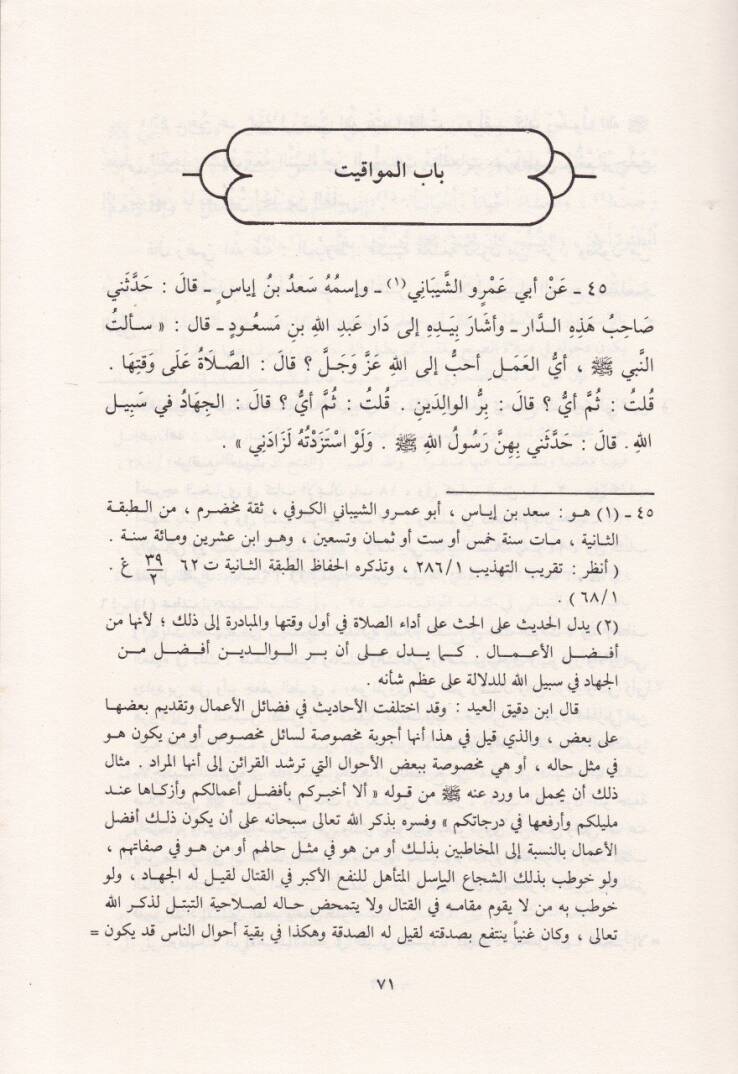 باب المواقيت
٤٥ ـ عَنْ أبي عَمْرٍو الشَّيبَانِي(١) ـ وإسمُهُ سَعدُ بنُ إياسٍ ـ قالَ : حَدَّثَني
صَاحِبُ هَذِهِ الـدَّارِ ـ وأشَارَ بِيَـدِهِ إلى دَار عَبدِ اللهِ بنِ مَسعُودٍ ـ قال : « سـألتُ
النَّبي ﷺ ، أيُّ العَمَلِ أحبُّ إلى اللهِ عَزَّ وَجَلَّ ؟ قالَ : الصَّلاَةُ عَلَى وَقتِهَا .
قُلتُ : ثُمَّ أي ؟ قالَ : بِرُّ الوالِدَينِ . قُلتُ : ثُمَّ أيُّ ؟ قالَ : الجِهَادُ في سَبِيـل
اللهِ . قالَ : حَدَّثَني بِهِنَّ رَسُولُ اللهِ ﷺ . وَلَوْ اسْتَزَدْتُهُ لَزَادَنِي » .
٤٥ ـ (١) هـو : سعد بن إيـاس ، أبو عمـرو الشيباني الكـوفي ، ثقة مخضرم ، من الـطبقـة
الثـانية ، مـات سنة خمس أو ست أو ثمـان وتسعين ، وهـو ابن عشرين ومـائة سنـة .
( أنظر : تقريب التهذيب ٢٨٦/١ ، وتذكره الحفاظ الطبقة الثانية ت ٦٢ ٣٩/٢ غ .
٦٨/١ ) .
(٢) يدل الحديث على الحث على أداء الصلاة في أول وقتها والمبادرة إلى ذلك ؛ لأنها من
أفضـل الأعمـال . كـما يـدل عـلى أن بـر الـوالـدين أفضـل مـن
الجهاد في سبيل الله للدلالة على عظم شأنه .
قال ابن دقيق العيد : وقد اختلفت الأحاديث في فضائل الأعمال وتقديم بعضهـا
على بعض ، والذي قيل في هذا أنها أجوبة مخصوصة لسائل مخصوص أو من يكون هـو
في مثل حاله ، أو هي مخصوصة ببعض الأحوال التي ترشد القرائن إلى أنها المراد . مثال
ذلك أن يحمل ما ورد عنه ﷺ من قـوله « ألا أخبـركم بأفضـل أعمالكم وأزكـاها عنـد
مليلكم وأرفعها في درجاتكم » وفسره بذكر الله تعالى سبحانه على أن يكون ذلـك أفضل
الأعمال بالنسبة إلى المخاطبين بذلـك أو من هو في مثـل حالهم أو من هـو في صفاتهم ،
ولو خوطب بذلك الشجاع الباسل المتأهل للنفع الأكبر في القتال لقيل له الجهـاد ، ولو
خوطب به من لا يقوم مقامـه في القتال ولا يتمحض حـاله لصـلاحية التبتـل لذكـر الله
تعالى ، وكان غنياً ينتفع بصدقته لقيل له الصدقة وهكذا في بقية أحوال الناس قد يكون =
٧١